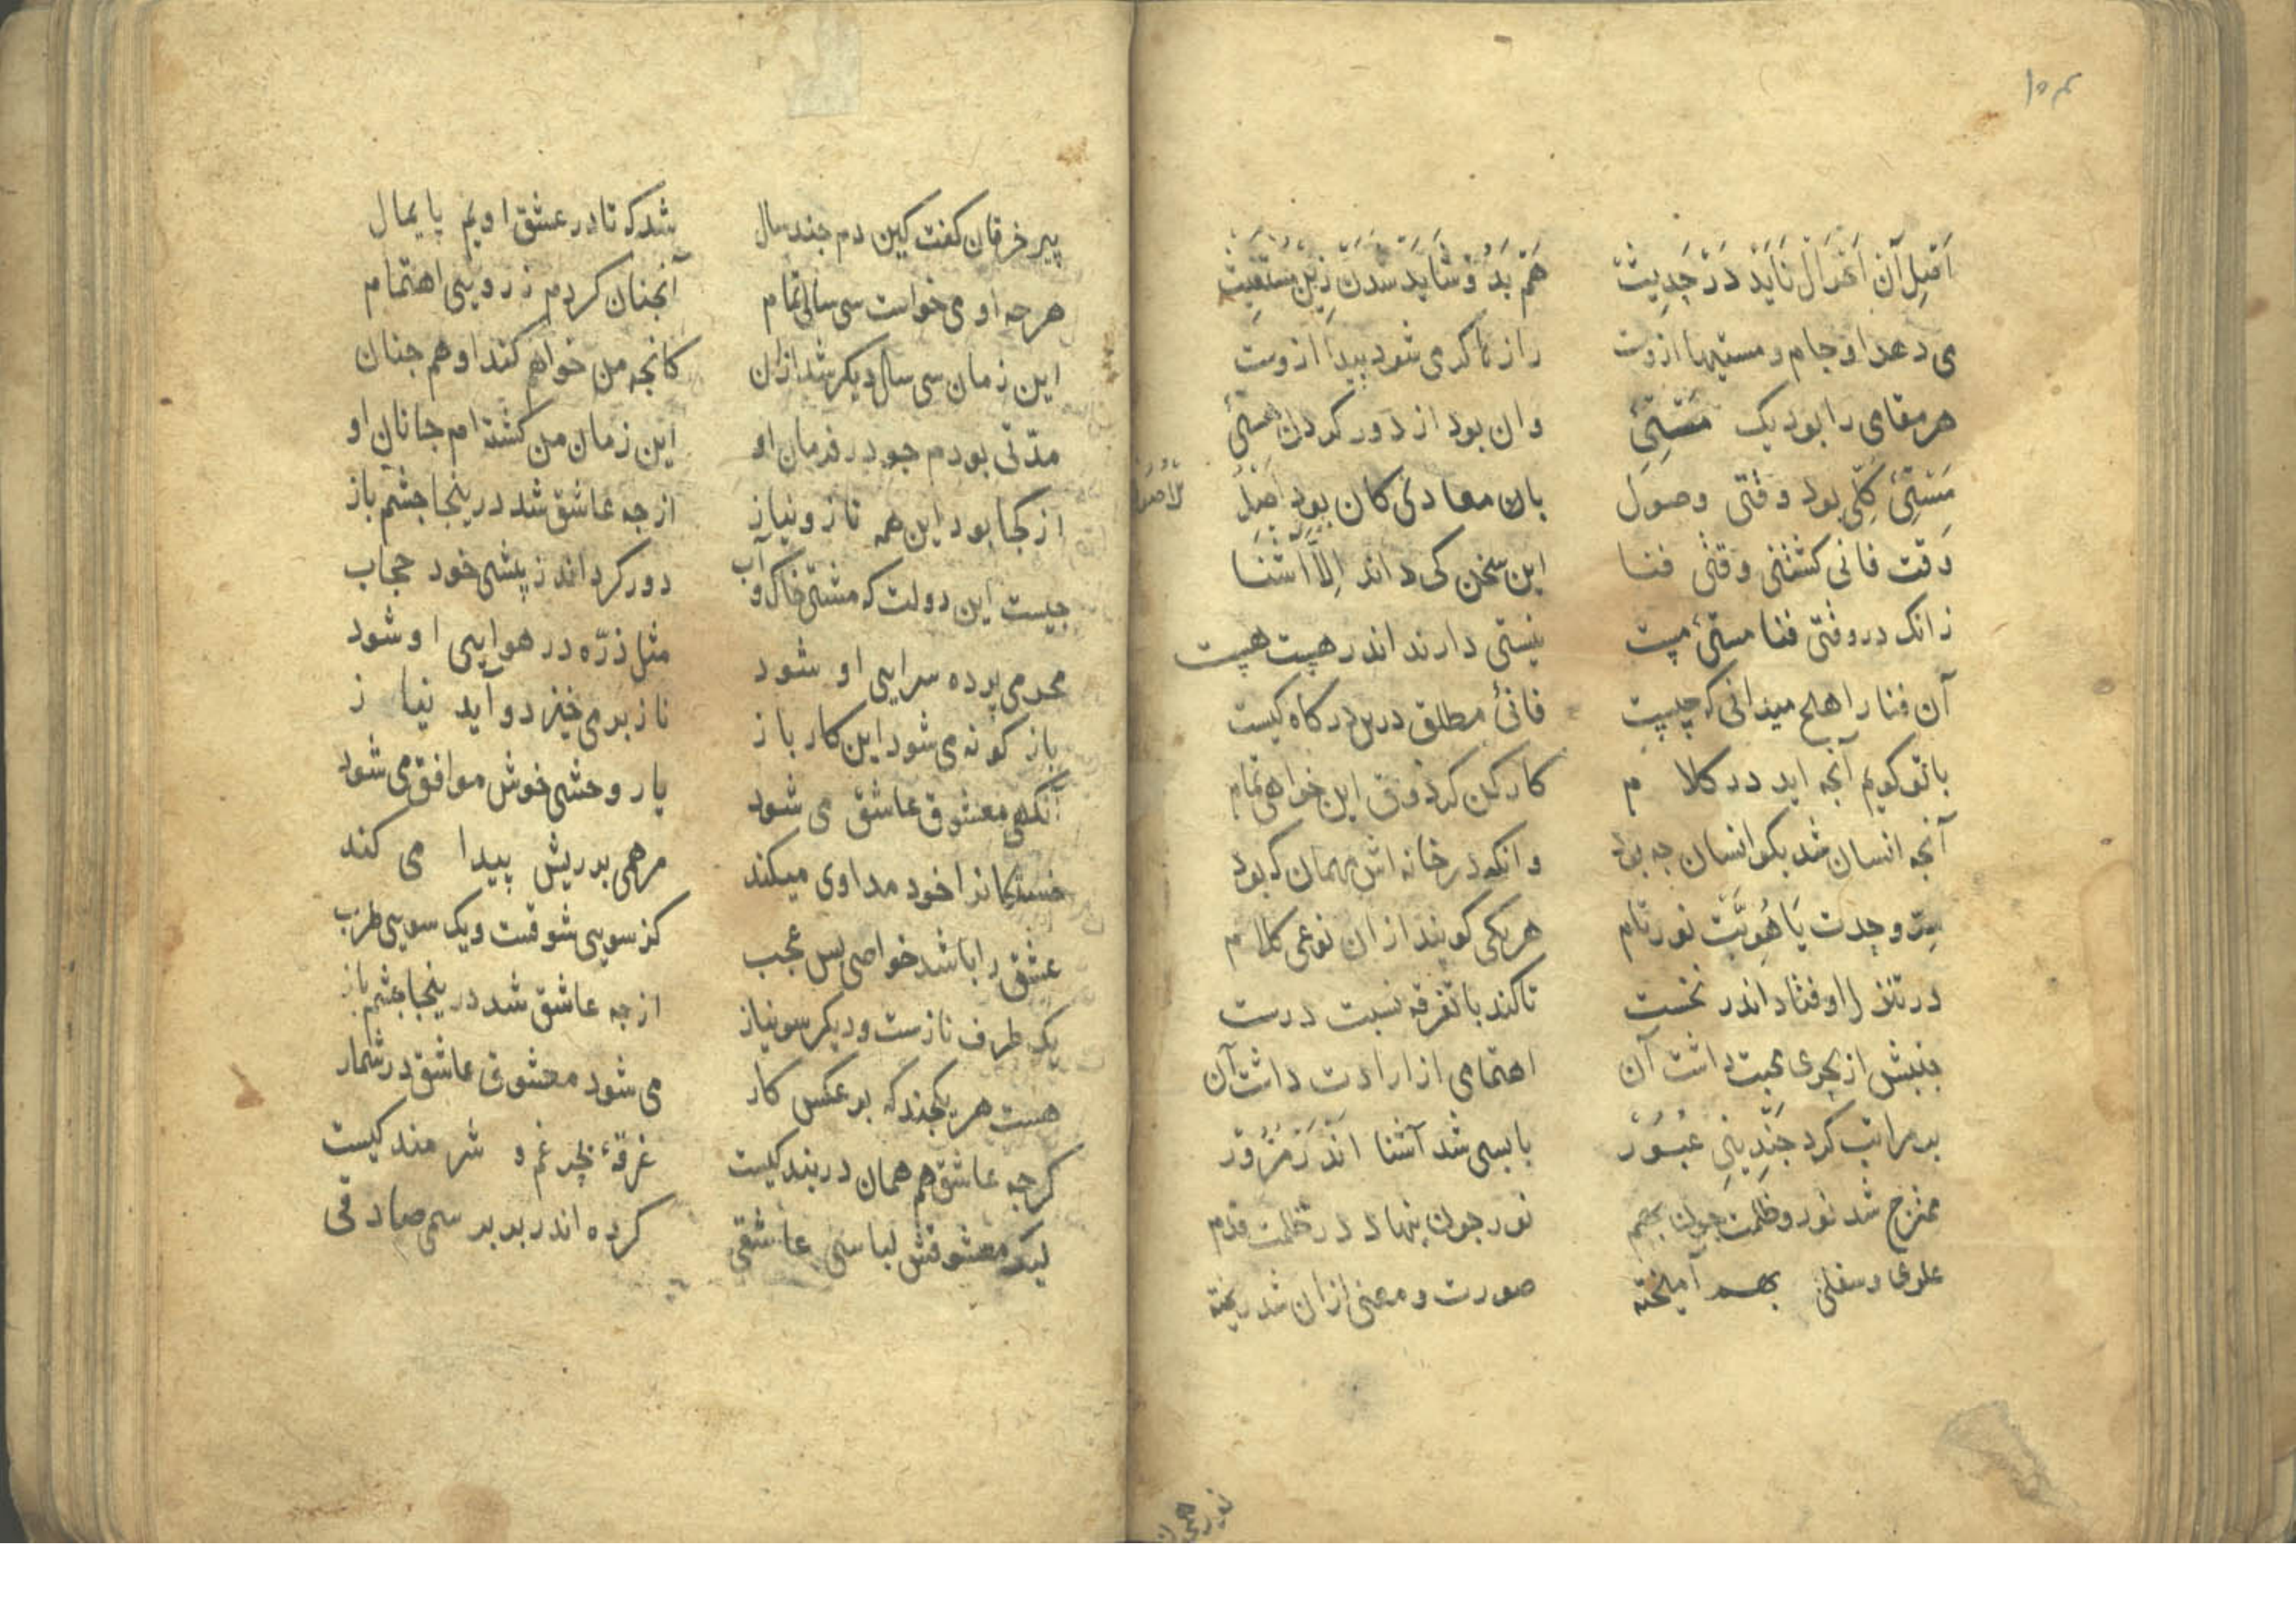 ۱۰۳
اقبل آن اغرال ناید در حدیث
هم بد و شاید شدن زین مستغیث
می دهد او جام و مستیها ازوست
راز ناکر می شود پیدا ازوست
هر مقامی را بود یک مستیٔ
وان بود از دور کردن هستیٔ
مستیٔ کلّی بود وقتی وصول
بان معادی کان بود اصل
وقت فانی کشتنی وقتی فنا
این سخن کی داند الّا آشنا
زانک در وقتی فنا مستیٔ
نیستی دارند اندر
آن فنا را هلح میدانی که چیست
فانیٔ مطلق درین درکاه کیست
با تو کویم آنچه اید در کلام
کار کن کر ذوق این خواهی تمام
آنجه انسان شد بکو انسان جه بود
وانکه در خانه اش مهمان که بود
سرّ وحدت یا هویّت نور تام
هر یکی کویند ازان نوعی کلام
در تنزل اوفتاد اندر نخست
تا کند با تفرقه نسبت درست
جنبش از بحری محبت داشت آن
اهتمامی از ارادت داشت آن
بر مراتب کرد جندینی عبور
با بسی شد آشنا اندر مرور
ممتزج شد نور و ظلمت جون بهم
نور جون بنهاد در ظلمت قدم
علوی و سفلی بهم آمیخته
صورت و معنی ازان شد ریخته
پیر خرقان کفت کین دم جند سال
شد که تا در عشق اویم پایمال
هرجه او می خواست سی سالی تمام
آنجنان کردم ز رویی اهتمام
این زمان سی سال دیکر شد ازان
کانجه من خواهم کند او هم جنان
مدّتی بودم جو در فرمان او
این زمان من کشته ام جانان او
از کجا بود این همه ناز و نیاز
از جه عاشق شد درینجا جشم باز
جیست این دولت که مشتی خاک و آب
دور کرد اند ز پیشی خود حجاب
محرمی پرده سرایی او شود
مثل ذرّه در هوایی او شود
باز کونه می شود این کار باز
ناز بر می خیزد و آید نیاز
آنکهی معشوق عاشق می شود
یار وحشی خوش موافق می شود
خستکانرا خود مداوی میکند
مرهمی بر ریش پیدا می کند
عشق را باشد خواصی بس عجب
کز سویی شوقست و یک سویی طرب
یک طرف نازست و دیکر سو نیاز
از جه عاشق شد درینجا جشم باز
هست هر یکجند که بر عکس کار
می شود معشوق عاشق در شمار
کرجه عاشق هم همان در بند کیست
غرقهٔ بحر غم و شرمند کیست
لیک معشوقش لباسی عاشقی
کرده اندر بر بر سم صادقی